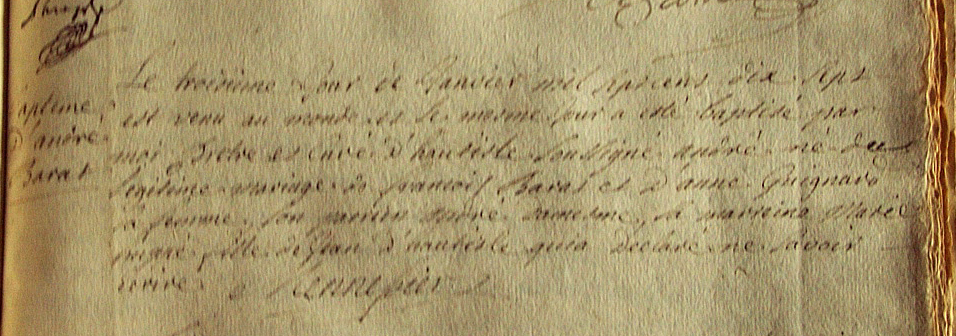 apteme
d'andré
Barat
Le troisieme Jour de Janvier mil sptcens dix sept
est venu au monde et le mesme jour a esté baptisé par
moi Prêtre et curé d'hauteisle soussigné andré né du
legitime mariage de francois Barat et d'anne Guignard
sa femme, son parrain andré la marreine Marie
fille de Jean d'hauteisle qui a declaré ne savoir
ecrire